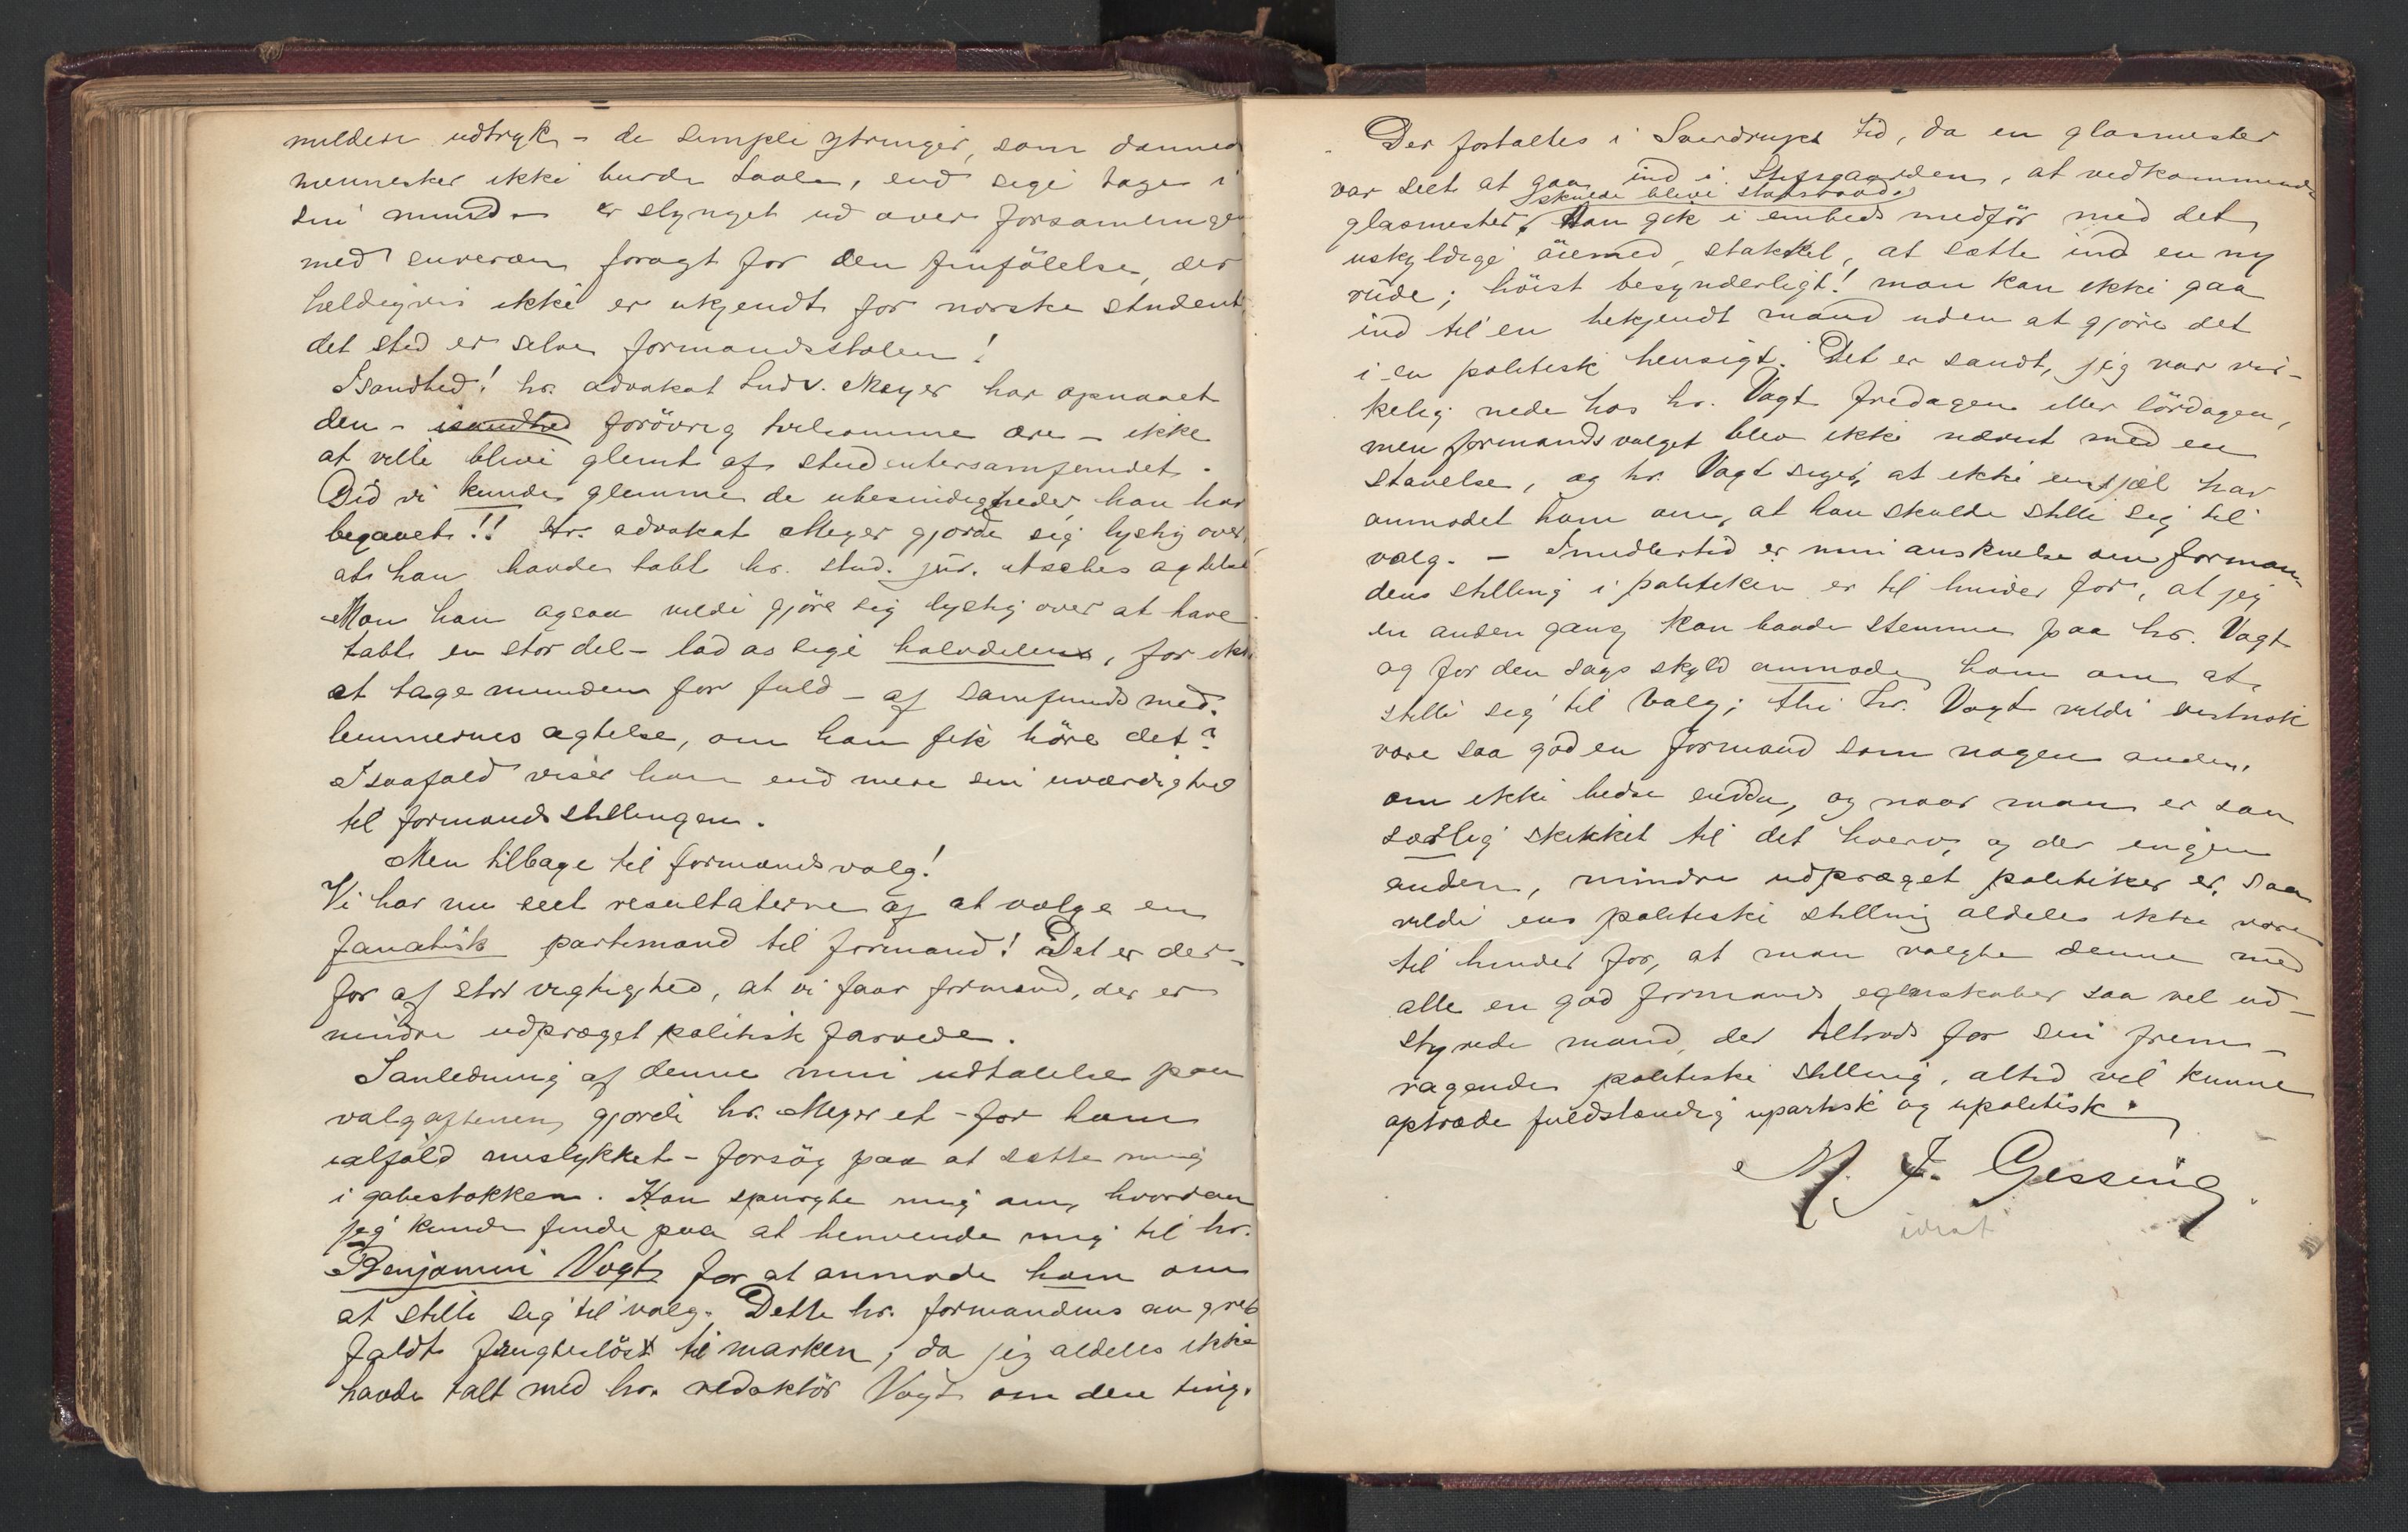 mildere udtryk – de simple ytringer, som danned
mennesker ikke burde taale, end sige tage i
sin mund – er slynget ud over forsamlingen
med suveræn foragt for den finfölelse, der
heldigvis ikke er ukjendt for norske student
det sted er selve formandsstolen!
Isandhed! hr. advokat Ludv. Meyer har opnaaet
den – isandhed forövrig tvilsomme ære – ikke
at ville blive glemt af studentersamfundet.
Gid vi kunde glemme de ubesindigheder han har
begaaet!! Hr. advokat Meyer gjorde sig lystig over,
at han havde tabt hr. stud. jur. Utsches agtelse
Mon han ogsaa vilde gjöre sig lystig over at have
tabt en stor del – lad os sige halvdelen, for ikke
at tage munden for fuld – af samfundsmed-
lemmernes agtelse, om han fik höre det?
Isaafald viser han end mere sin uværdighed
til formandsstillingen.
Men tilbage til formandsvalg!
Vi har nu seet resultaterne af at vælge en
fanatisk partimand til formand! Det er der-
for af stor vigtighed, at vi faar formænd, der er
mindre udpræget politisk farvede.
I anledning af denne min udtalelse paa
valgaftenen gjorde hr. Meyer et – for ham
ialfald mislykket – forsög paa at sætte mig
i gabestokken. Han spurgte mig om, hvordan
jeg kunde finde paa at henvende mig til hr.
Benjamin Vogt for at anmode ham om
at stille sig til valg. Dette hr. formandens angreb
faldt frugteslöst til marken; da jeg aldeles ikke
havde talt med hr. redaktör Vogt om den ting.
Der fortaltes i Sverdrups tid, da en glasmester
var seet at gaa ind i Stiftsgaarden, at vedkommende
skulde blive statsraad.
glasmester, Han gik i embeds medför med det
uskyldige öiemed, stakkel, at sætte ind en ny
rude; höist besynderligt! man kan ikke gaa
ind til en bekjendt mand uden at gjöre det
i en politisk hensigt. Det er sandt, jeg var vir-
kelig nede hos hr. Vogt fredagen eller lördagen,
men formandsvalget blev ikke nævnt med en
stavelse, og hr. Vogt siger, at ikke en sjæl har
anmodet ham om, at han skulde stille sig til
valg. – Imidlertid er min anskuelse om forman-
dens stilling i politiken er til hinder for, at jeg
en anden gang kan baade stemme paa hr. Vogt
og for den sags skyld anmode ham om at
stille sig til valg; thi hr. Vogt vilde vistnok
være saa god en formand som nogen anden,
om ikke bedre endda, og naar man er saa
særlig skikket til det hverv, og der ingen
anden, mindre udpræget politiker er, saa
vilde ens politiske stilling aldeles ikke være
til hinder for, at man valgte denne med
alle en god formands egenskaber saa vel ud-
styrede mand, der tiltrods for sin frem-
ragende politiske stilling, altid vil kunne
optræde fuldstændig upartisk og upolitisk.
M. J. Gessing
idiot